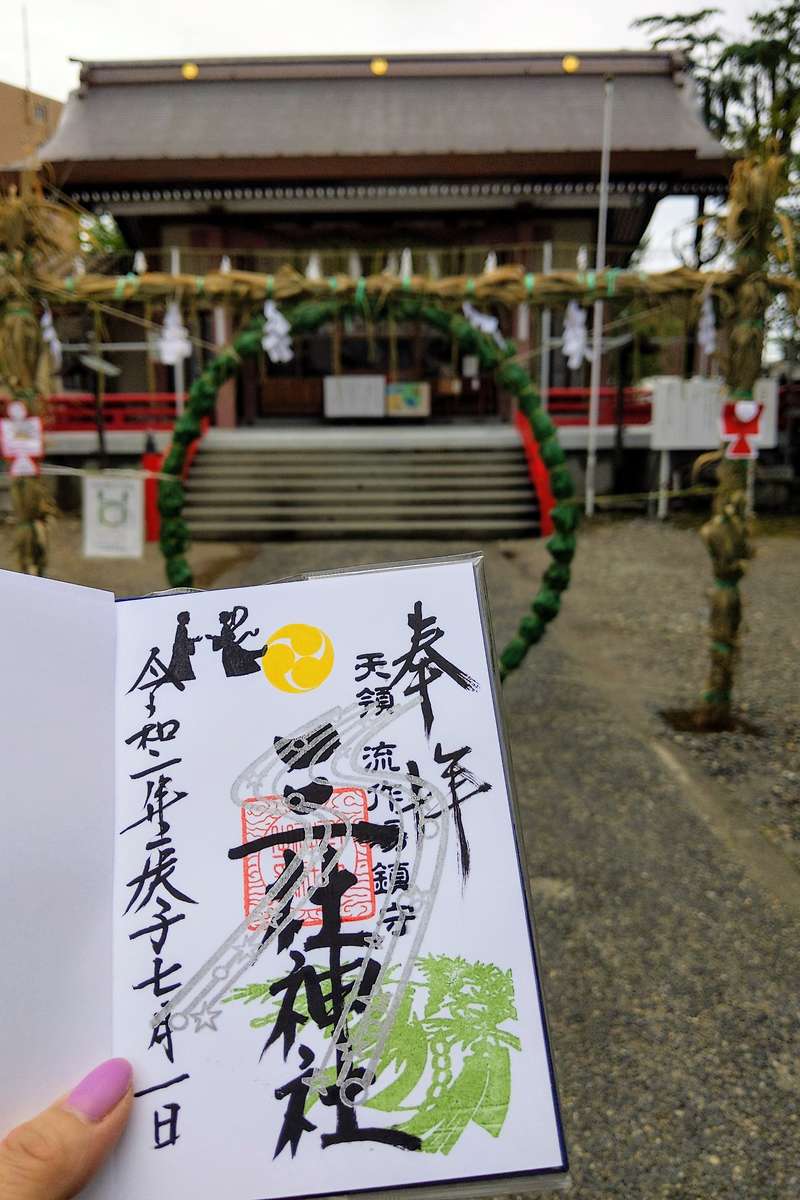 奉拝
天領 流作場 鎮守
三社神社
令和二年庚子七月一日